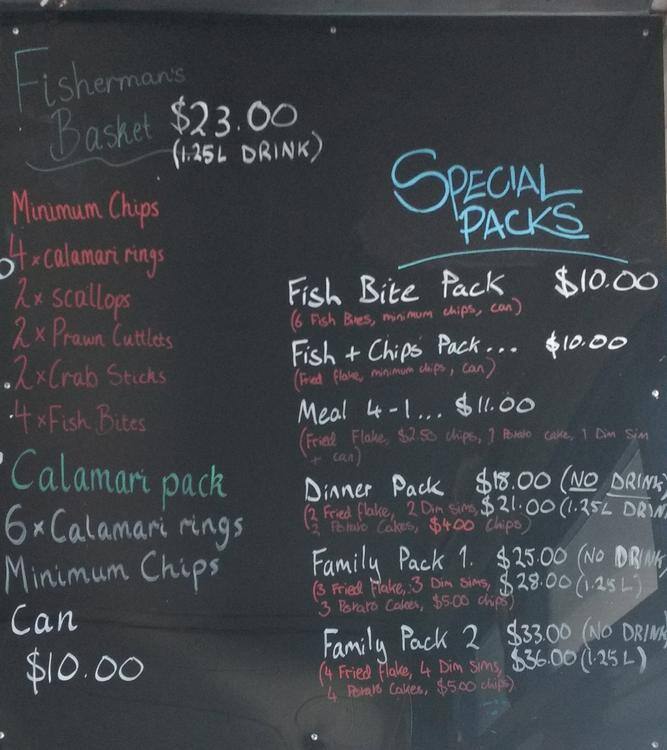 Fisherman's
Basket $23.00
(1.25L DRINK)
Minimum Chips
4 x calamari rings
2 x scallops
2 x Prawn Cuttlets
2 x Crab Sticks
4 x Fish Bites
Calamari pack
6 x Calamari rings
Minimum Chips
Can
$10.00
SPECIAL
PACKS
Fish Bite Pack $10.00
(6 Fish Bites, minimum chips, can)
Fish + Chips Pack... $10.00
(Fried flake, minimum chips, can)
Meal 4-1... $11.00
(Fried Flake, $2.50 chips, 1 Potato cake, 1 Dim Sim
+ can)
Dinner Pack $18.00 (NO DRINK)
(2 Fried flake, 2 Dim sims, $21.00 (1.25L DRIN
2 Potato Cakes, $4.00 chips)
Family Pack 1. $25.00 (NO DRINK
(3 Fried Flake, 3 Dim Sims, $28.00 (1.25L)
3 Potato Cakes, $5.00 chips)
Family Pack 2 $33.00 (NO DRINK
(4 Fried Flake, 4 Dim Sims, $36.00 (1.25L)
4 Potato Cakes, $5.00 chips)